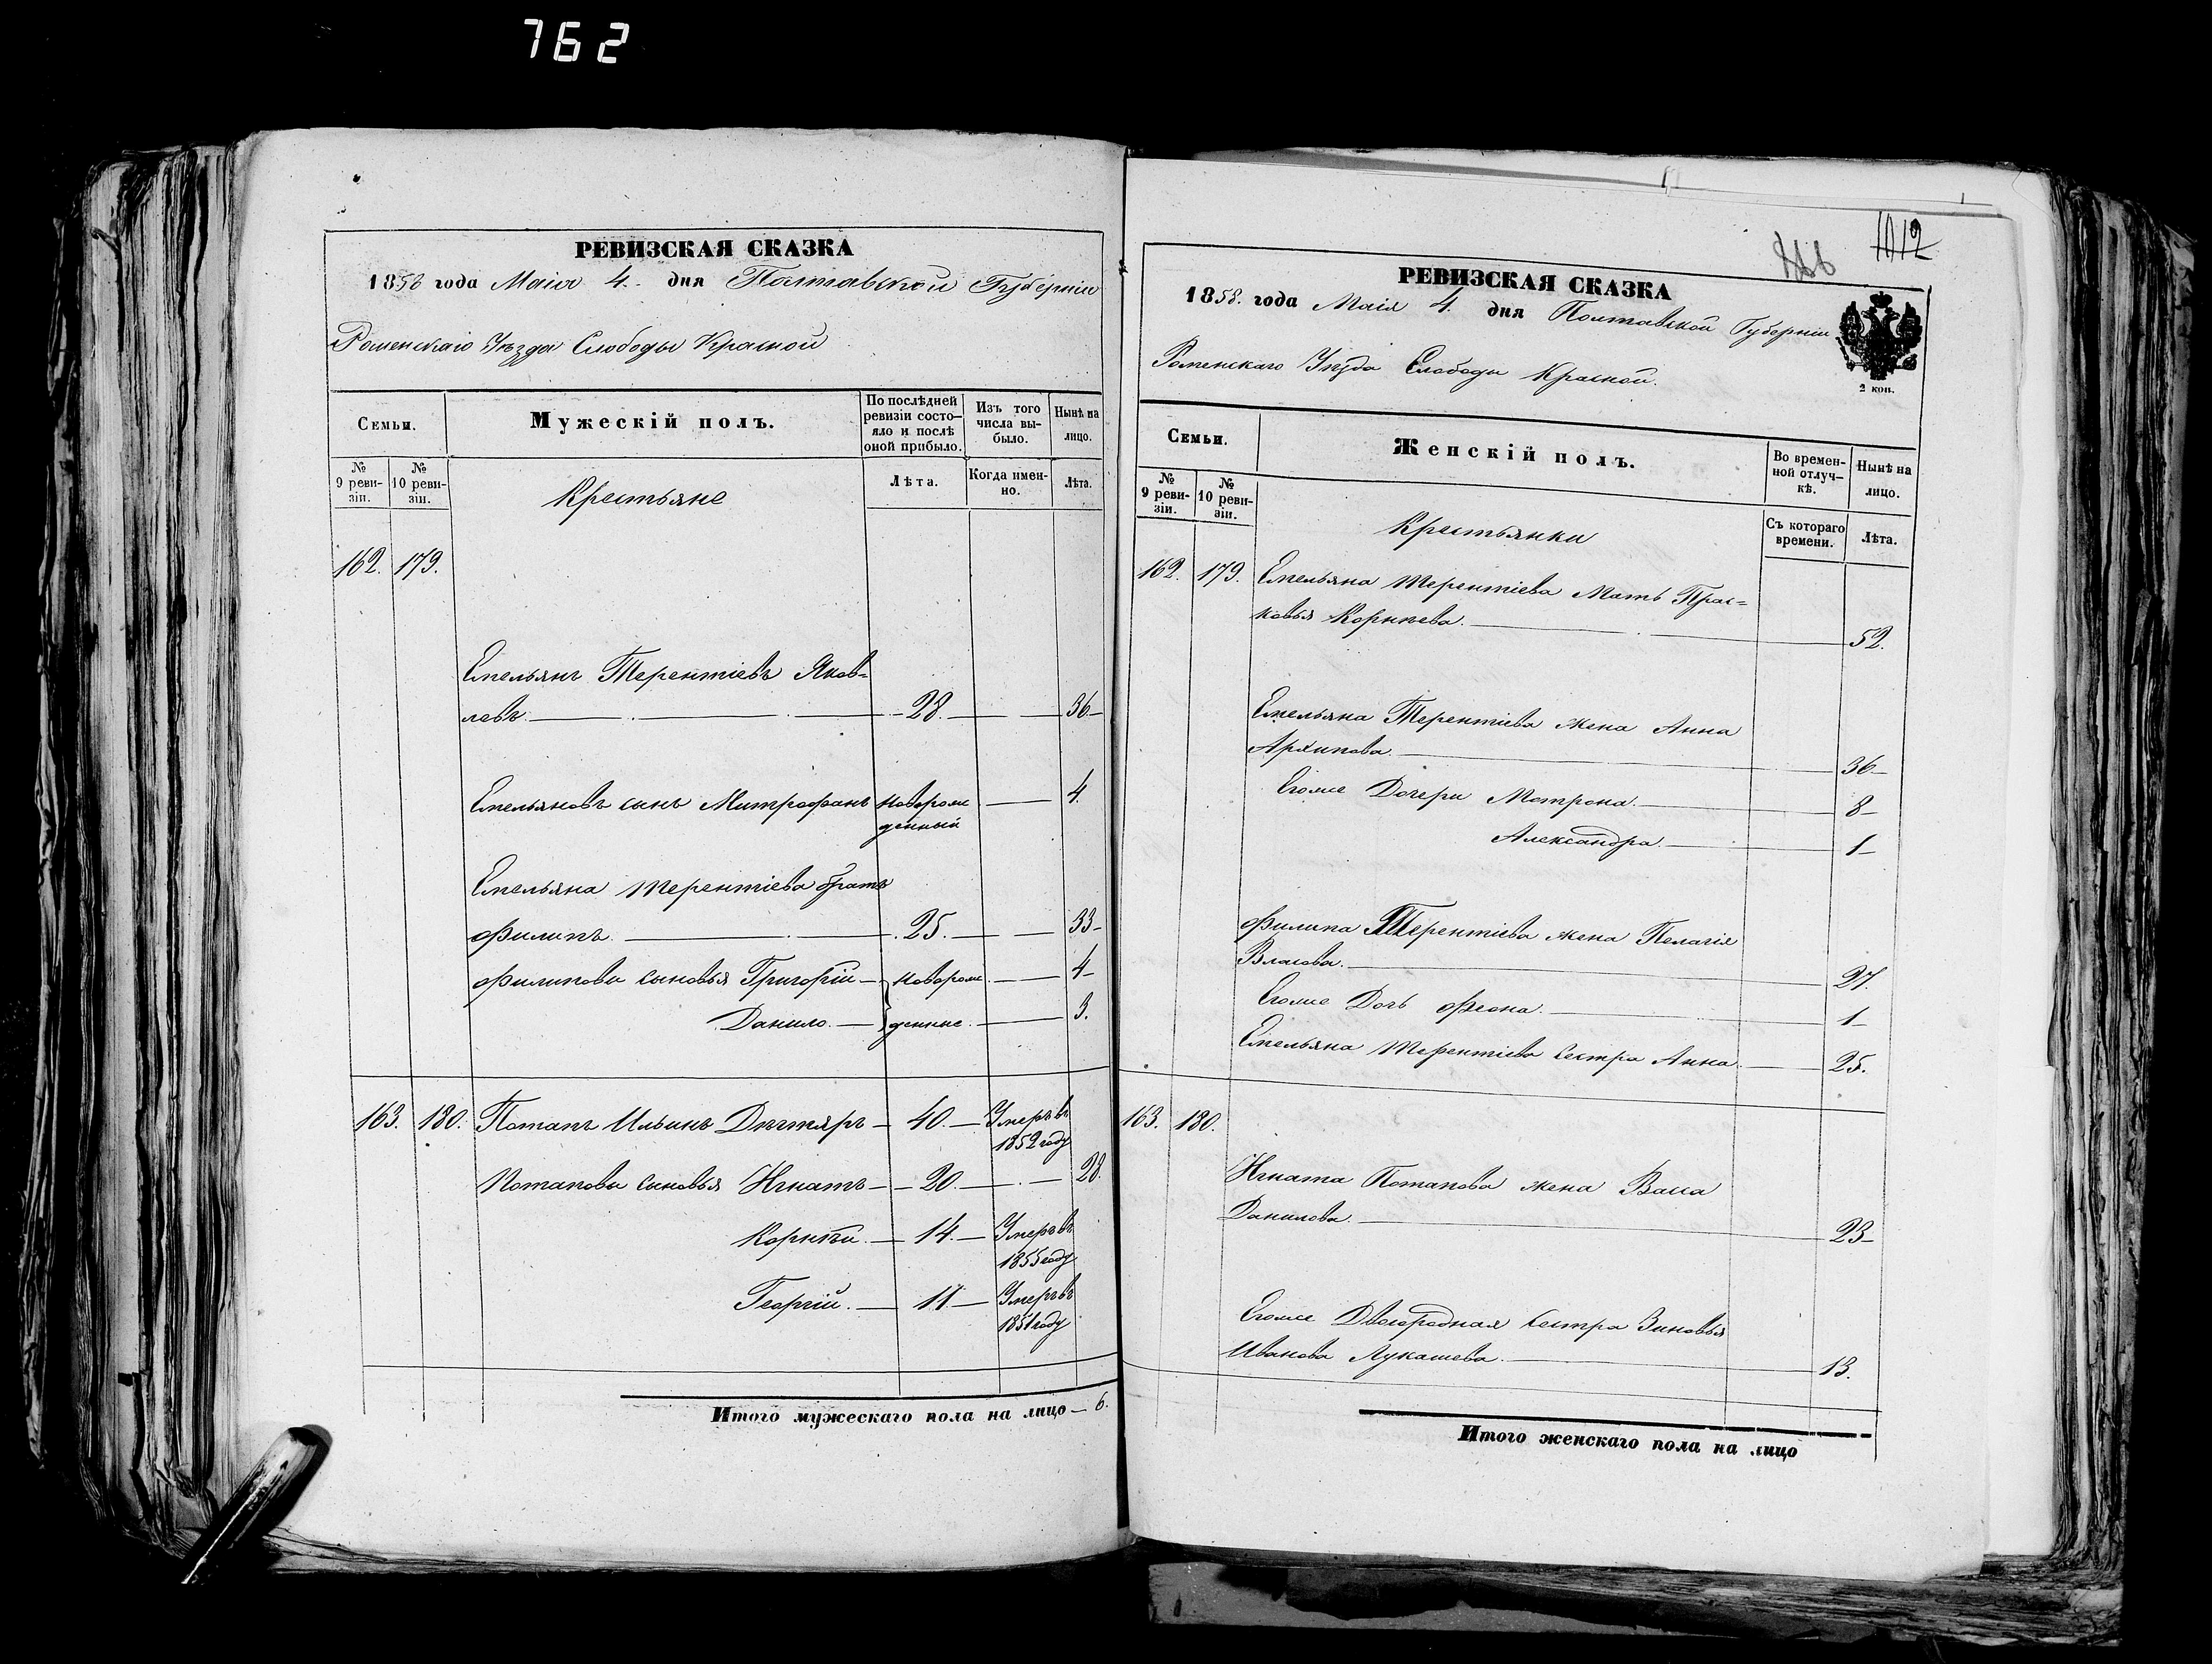 762
РЕВИЗСКАЯ СКАЗКА
1858 года Маія 4. дня Полтавской Губерніи
Роменскаго Уѣзда Слободы Красной
Семьи.
Мужескій полъ.
По послѣдней
ревизіи состо-
яло и послѣ
оной прибыло.
Изъ того
числа вы-
было.
Нынѣ на
лицо.
№
9 реви-
зіи.
№
10 реви-
зіи.
Крестьяне
Лѣта.
Когда имен-
но.
Лѣта.
162. 179.
Емельянъ Терентіевъ Яков=
левъ. — 28. — 36
Емельяновъ сынъ Митрофанъ новорож
денный — 4.
Емельяна Терентіева братъ
Филипъ. — 25. — 33
Филиповы сыновья Григорій — новорож — 4
Данило. — денные. — 3.
163. 180. Потапъ Ильинъ Дѣгтярь — 40. — Умеръ въ
1852 году
Потаповы сыновья Игнатъ — 20. — 28.
Корнѣй. — 14. — Умеръ въ
1855 году
Георгій. — 11 — Умеръ въ
1851 году
Итого мужескаго пола на лицо — 6.
1012
РЕВИЗСКАЯ СКАЗКА
1858. года Маія 4. дня Полтавской Губерніи
Роменскаго Уѣзда Слободы Красной.
2 коп.
Семьи.
Женскій полъ.
Во времен-
ной отлуч-
кѣ.
Нынѣ на
лицо.
№
9 реви-
зіи.
№
10 реви-
зіи.
Крестьянки
Съ котораго
времени.
Лѣта.
162. 179. Емельяна Терентіева Мать Прас=
ковья Корнѣева. — 52.
Емельяна Терентіева жена Анна
Архипова. — 36
Егоже Дочери Мотрона. — 8
Александра. — 1
Филипа Терентіева жена Пелагія
Власова. — 27.
Егоже Дочь Феона. — 1
Емельяна Терентіева Сестра Анна. — 25.
163. 180.
Игната Потапова жена Васса
Данилова. — 23
Егоже Двоюродная Сестра Зиновья
Иванова Лукашева. — 13.
Итого женскаго пола на лицо